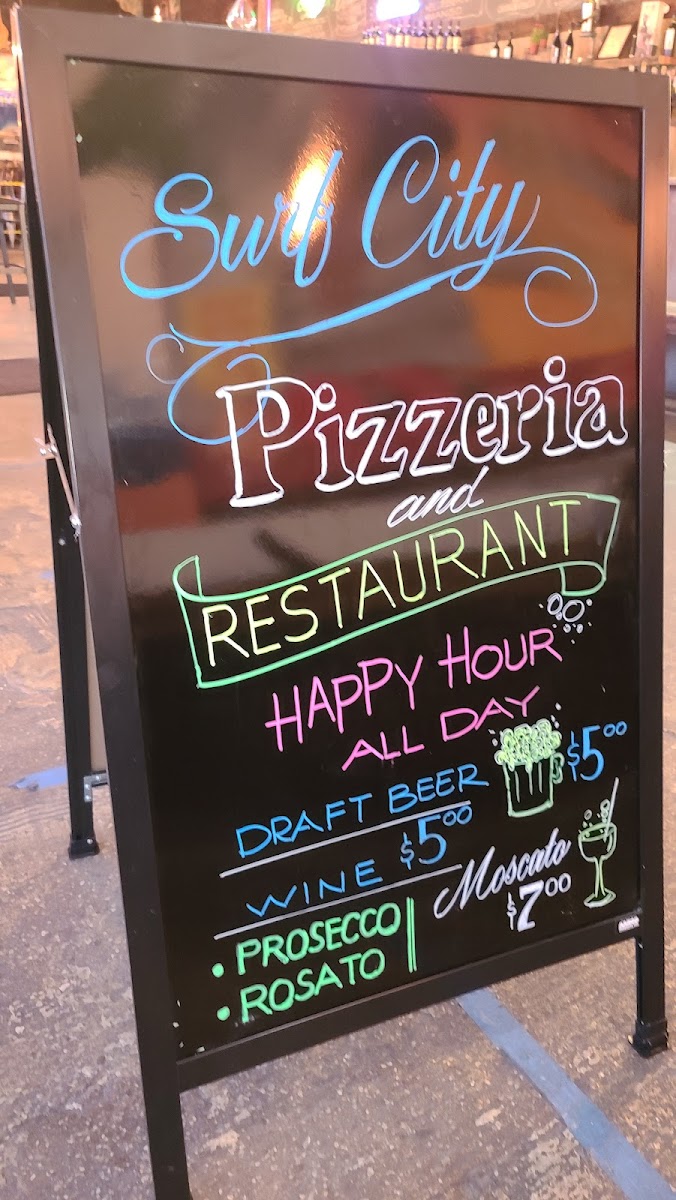 Surf City
Pizzeria
and
RESTAURANT
HAPPY HOUR
ALL DAY
DRAFT BEER $5.00
WINE $5.00
Moscato
$7.00
• PROSECCO
• ROSATO